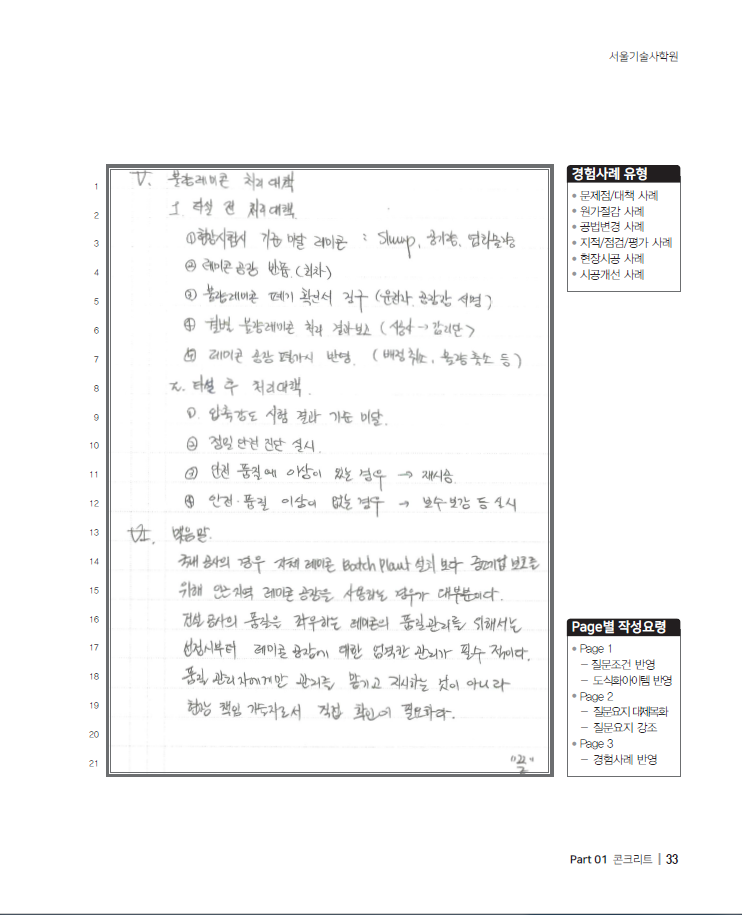 서울기술사학원
1 V. 불량레미콘 처리대책
2 1. 타설 전 처리대책
3 ① 현장시험시 기준 미달 레미콘 : Slump, 공기량, 염화물량
4 ② 레미콘 공장 반품 (회차)
5 ③ 불량레미콘 폐기 확인서 징구 (운전자, 공장장 서명)
6 ④ 월별 불량레미콘 처리 결과보고 (시공사 → 감리단)
7 ⑤ 레미콘 공장 평가시 반영. (배정취소, 물량축소 등)
8 2. 타설 후 처리대책.
9 ① 압축강도 시험 결과 기준 미달.
10 ② 정밀안전 진단 실시.
11 ③ 안전 품질에 이상이 있는 경우 → 재시공.
12 ④ 안전·품질 이상이 없는 경우 → 보수·보강 등 실시
13 VI. 맺음말.
14 국내 공사의 경우 자체 레미콘 Batch Plant 설치 보다 중소기업 보호를
15 위해 인근지역 레미콘 공장을 사용하는 경우가 대부분이다.
16 건설공사의 품질을 좌우하는 레미콘의 품질관리를 위해서는
17 선정시부터 레미콘 공장에 대한 엄격한 관리가 필수 적이다.
18 품질 관리자에게만 관리를 맡기고 지시하는 것이 아니라
19 현장 책임 기술자로서 직접 확인이 필요하다.
20
21 "끝"
경험사례 유형
• 문제점/대책 사례
• 원가절감 사례
• 공법변경 사례
• 지적/점검/평가 사례
• 현장시공 사례
• 시공개선 사례
Page별 작성요령
• Page 1
– 질문조건 반영
– 도식화아이템 반영
• Page 2
– 질문요지 대제목화
– 질문요지 강조
• Page 3
– 경험사례 반영
Part 01 콘크리트 | 33